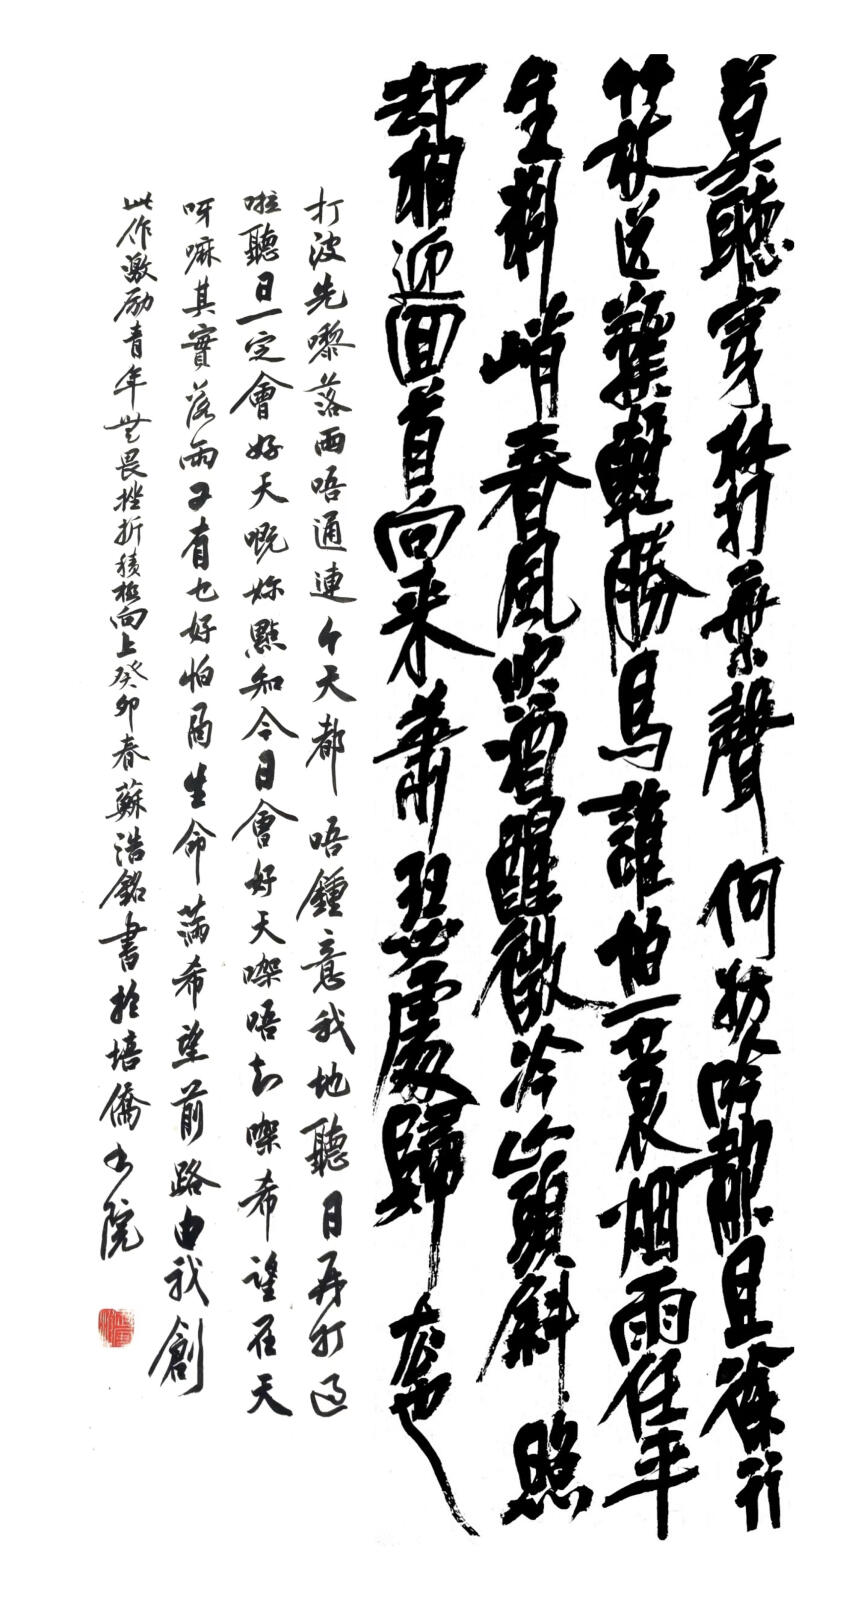 莫聽穿林打葉聲何妨吟嘯且徐行
竹杖芒鞋輕勝馬誰怕一蓑烟雨任平
生料峭春風吹酒醒微冷山頭斜照
却相迎回首向来蕭瑟處歸去也
打波先嚟落雨唔通連个天都唔鍾意我地聽日再打過
啦聽日一定會好天嘅妳點知今日會好天㗎唔知㗎希望在天
呀嘛其實落雨又有乜好怕咼生命滿希望前路由我創
此作激励青年無畏挫折積極向上癸卯春蘇浩銘書於培僑书院